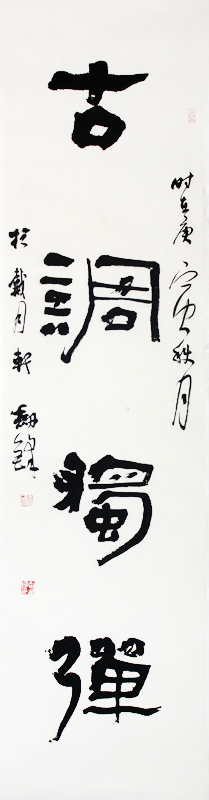 古調獨彈
时在庚寅秋月
於戴月軒